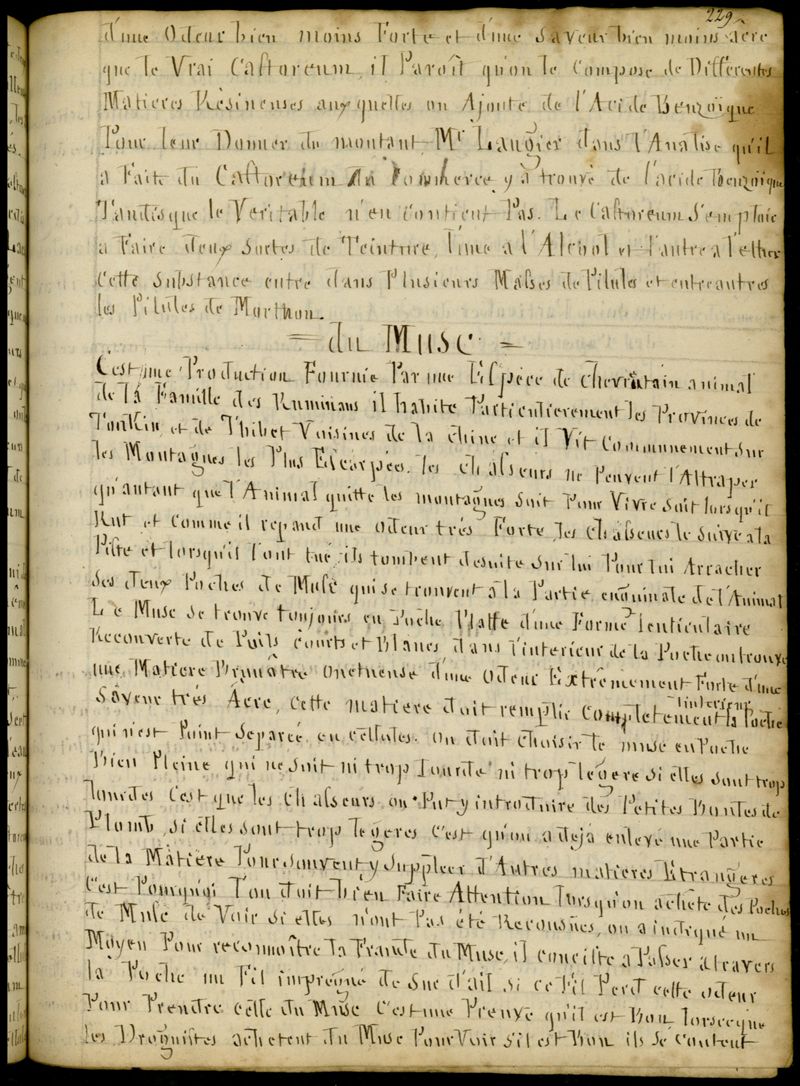 229
d'une Odeur bien moins Forte et d'une Saveur bien moins acre
que le Vrai Castoreum, il Paroît qu'on le Compose de Differentes
Matieres Résineuses auxquelles on Ajoute de l'Acide Benzoïque
Pour leur Donner du montant. Mr Laugier dans l'Analise qu'il
a Faite du Castoreum du Commerce y a trouvé de l'acide Benzoïque
Tandisque le Veritable n'en Contient Pas. Le Castoreum S'emploie
a Faire deux Sortes de Teinture, l'une a l'Alcool et l'autre a l'ether
Cette Substance entre dans Plusieurs Masses de Pilules et entreautres
les Pilules de Morthon.
= du Musc =
C'est une Production Fournie Par une Espéce de Chevrotain animal
de la Famille des Ruminans il habite Particulierement les Provinces de
Tonkin, et de Thibet Voisines de la Chine et il Vit Communnement Sur
les Montagnes les Plus Escarpées. les chasseurs ne Peuvent l'Attraper
qu'autant que l'Animal quitte les montagnes Soit Pour Vivre Soit lorsqu'il
Rut et comme il repand une odeur trés Forte, les chasseurs le Suive a la
Piste et lorsqu'il l'ont tué, ils tombent desuite Sur lui Pour lui Arracher
Ses deux Poches de Musc qui se trouvent à la Partie enguinale de l'Animal
Le Musc Se trouve toujours en Poche Platte d'une Forme lenticulaire
Recouverte de Poils courts et Blancs dans l'interieur de la Poche on trouve
une Matiere Brunatre Onctueuse d'une Odeur Extrêmement Forte d'une
Saveur trés Acre, Cette matiere doit remplir Completement l'interieur la Poche
qui n'est Point Separée en cellules. On doit choisir le musc en Poche
Bien Pleine qui ne Soit ni trop lourde ni trop legere Si elles Sont trop
lourdes C'est que les chasseurs ont Put y introduire des Petites Boules de
Plomb, Si elles sont trop legeres c'est qu'on a dejà enlevé une Partie
de la Matiere Pour Souvent y Suppleer d'Autres matieres Etrangeres
C'est Pourquoi l'on doit bien Faire Attention lorsqu'on achéte des Poches
de Musc de Voir Si elles n'ont Pas été Recousues, on a indiqué un
Moyen Pour reconnoître la Fraude du Musc, il conciste a Passer a travers
la Poche un Fil impregné de Suc d'ail Si ce Fil Perd cette odeur
Pour Prendre celle du Musc C'est une Preuve qu'il est Bon, lorsceque
les Droguistes achetent du Musc Pour Voir S'il est Bon ils Se Content